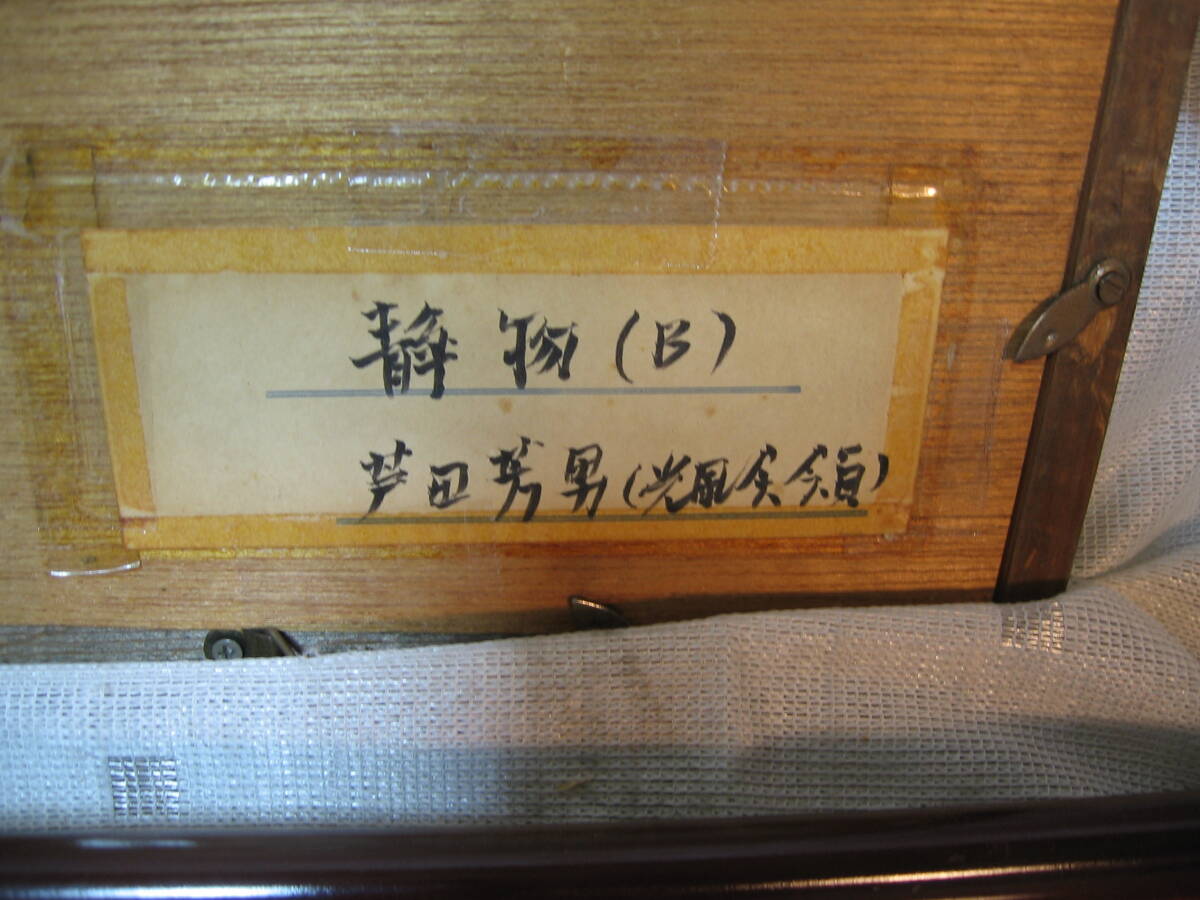 静物(B)
芦田芳男(光風会会員)